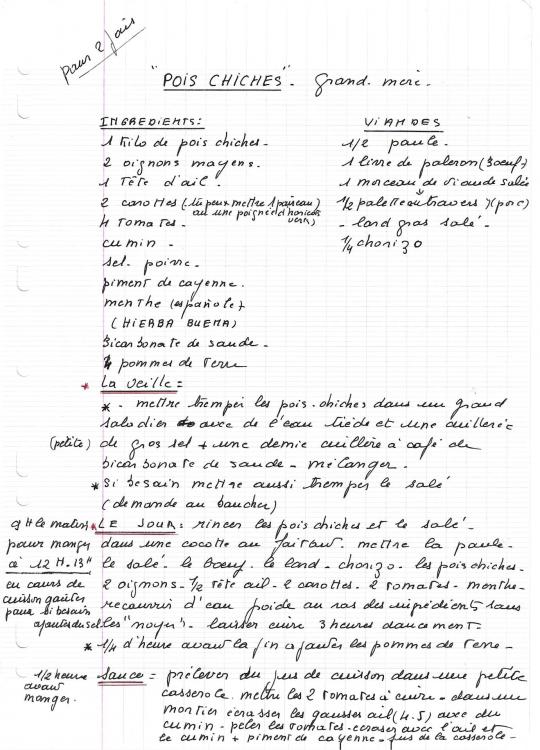 pour 2 fois
"POIS CHICHES". Grand. mère.
INGREDIENTS:
1 Kilo de pois chiches.
2 oignons moyens.
1 Tête d'ail.
2 carottes (. tu peux mettre 1 poireau)
ou une poignée d'haricots verts)
4 Tomates.
cumin -
sel. poivre.
piment de cayenne.
menthe (española)
(HIERBA BUENA)
Bicarbonate de soude.
4 pommes de Terre
VIANDES
1/2 paule.
1 livre de paleron (Boeuf)
1 morceau de viande salée
1/2 palette ou travers) (porc)
- lard gras salé -
1/4 chorizo
* La Veille =
* - mettre tremper les pois. chiches dans un grand
saladier avec de l'eau tiède et une cuillerée
(petite) de gros sel + une demie cuillère à café de
bicarbonate de soude - mélanger.
* Si besoin mettre aussi tremper le salé
(demande au boucher)
9H le matin
pour manger
à 12 H. 13H
en cours de
cuisson goûter
pour si besoin
ajouter du sel
* LE JOUR: rincer les pois chiches et le salé -
dans une cocotte ou faitout. mettre la paule -
le salé. le boeuf. le lard - chorizo. les pois chiches.
2 oignons - 1/2 Tête ail - 2 carottes. 2 Tomates - menthe -
recouvrir d'eau froide au ras des ingrédients sans
les "noyer". laisser cuire 3 heures doucement.
* 1/4 d'heure avant la fin ajouter les pommes de Terre -
1/2 heure
avant
manger.
Sauce = prélever du jus de cuisson dans une petite
casserole. mettre les 2 Tomates à cuire - dans un
mortier écraser les gousses ail (4.5) avec du
cumin - peler les Tomates - écraser avec l'ail et
le cumin + piment de cayenne - jus de la casserole -